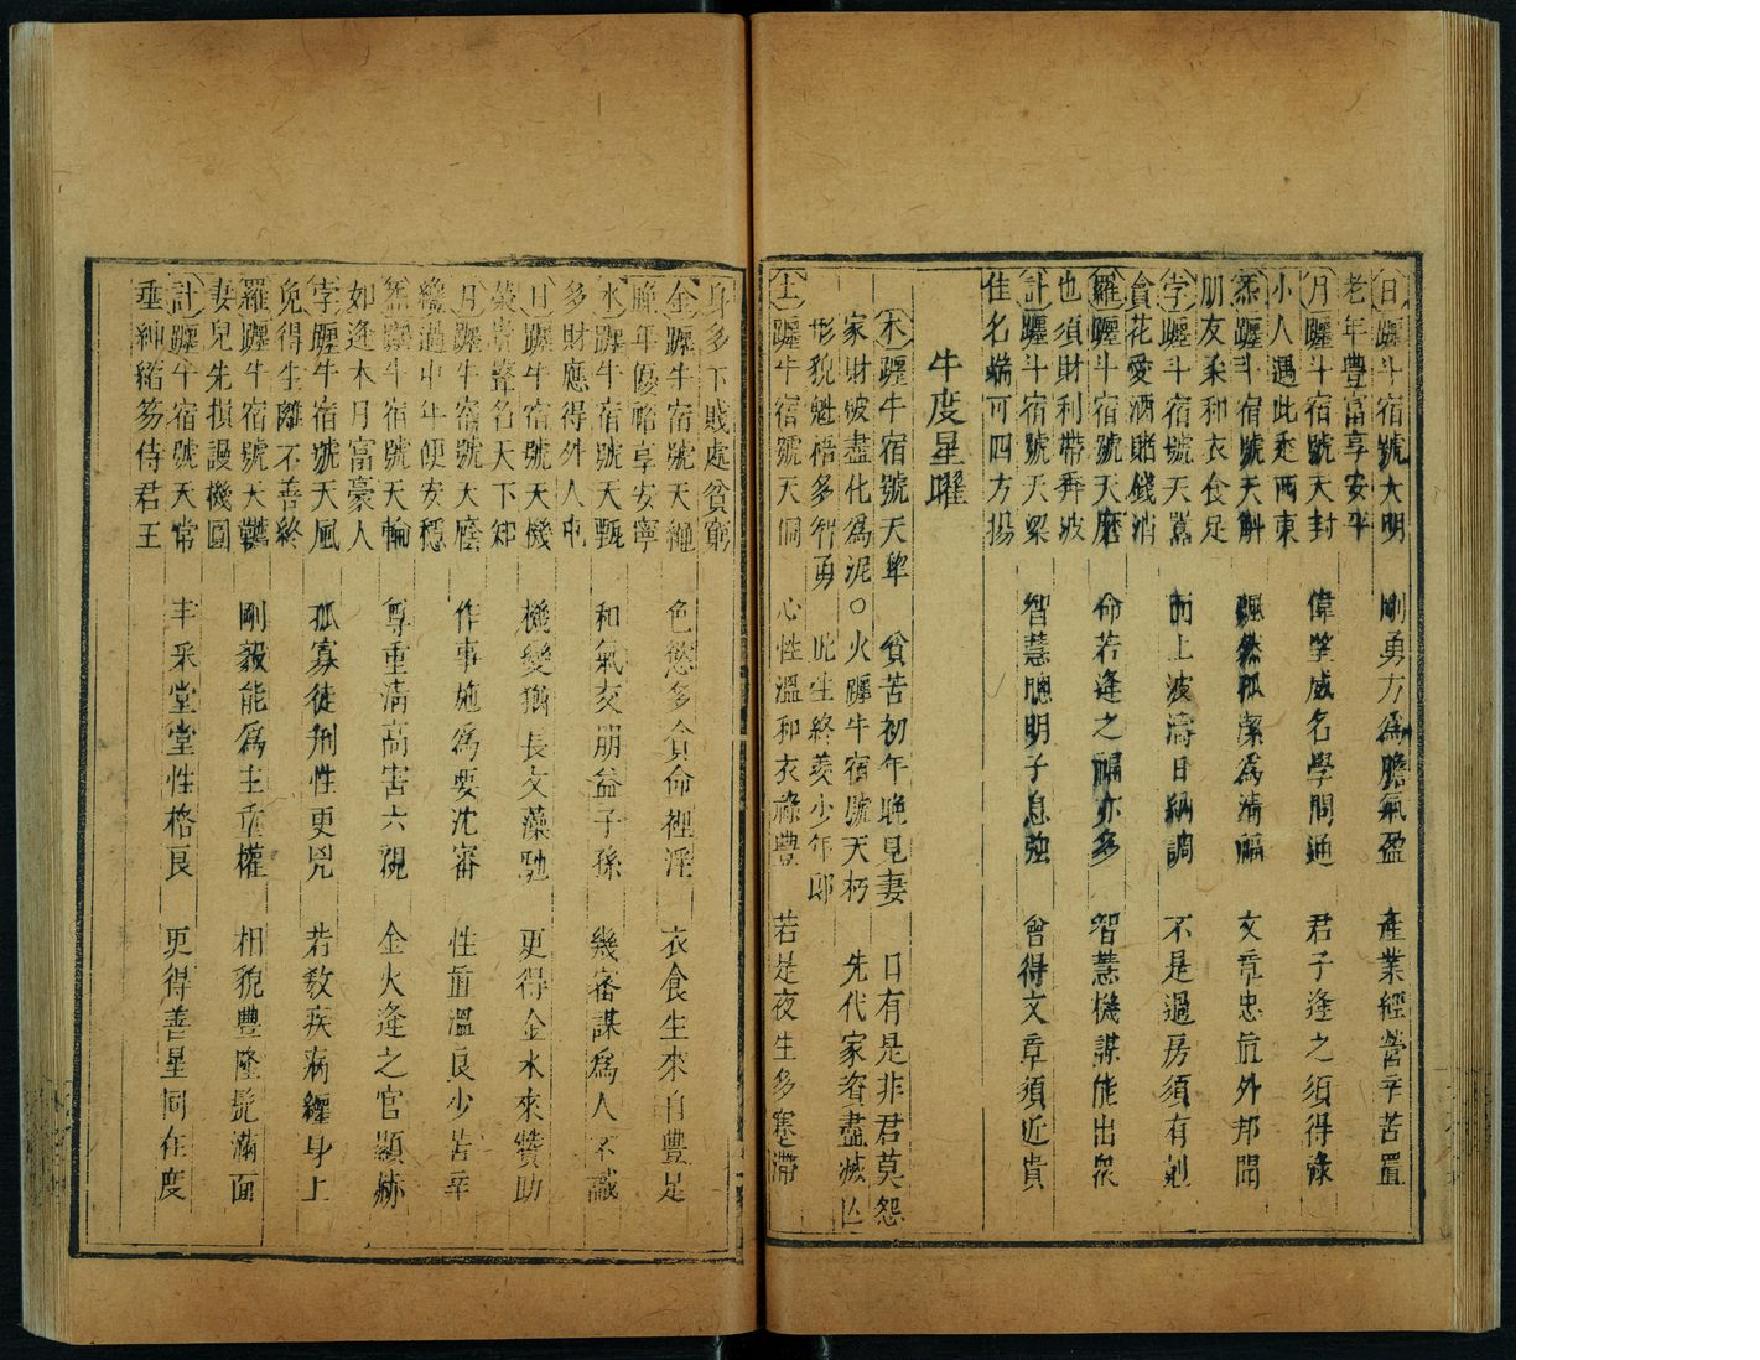 日躔斗宿號大明　剛勇方爲膽氣盈　產業經營辛苦置
老年豐富享安平
月躔斗宿號天封　偉掌威名學問通　君子逢之須得祿
小人遇此走西東
炁躔斗宿號天斛　飄然孤潔爲清福　文章忠直外邦聞
朋友柔和衣食足
孛躔斗宿號天罵　面上波濤日納調　不是過房須有剋
貪花愛酒賭錢消
羅躔斗宿號天磨　命若逢之禍亦多　智慧機謀能出眾
也須財利帶奔波
計躔斗宿號天梁　智慧聰明子息強　曾得文章須近貴
佳名端可四方揚
牛度星曜
木躔牛宿號天牢　貧苦初年晚見妻　口有是非君莫怨
家財破盡化爲泥○火躔牛宿號天朽　先代家資盡滅亾
形貌魁梧多智勇　此生終羨少年郎
土躔牛宿號天侗　心性溫和衣祿豐　若是夜生多蹇滯
身多下賤處貧窮
金躔牛宿號天繩　色慾多貪命裡淫　衣食生來自豐足
晚年優裕享安寧
水躔牛宿號天甄　和氣交朋益子孫　幾審謀爲人不識
多財應得外人屯
日躔牛宿號天機　機變猶長文藻馳　更得金水來贊助
榮貴聲名天下知
月躔牛宿號天廕　作事施爲要沈審　性直溫良少苦辛
纔過中年便安穩
炁躔牛宿號天輪　尊重清高害六親　金火逢之官顯赫
如逢木月富豪人
孛躔牛宿號天風　孤寡徒刑性更兇　若教疾病纏身上
免得生離不善終
羅躔牛宿號天鸛　剛毅能爲主重權　相貌豐隆髭滿面
妻兒先損謾機圓
計躔牛宿號天常　丰采堂堂性格良　更得善星同在度
垂紳搢笏侍君王